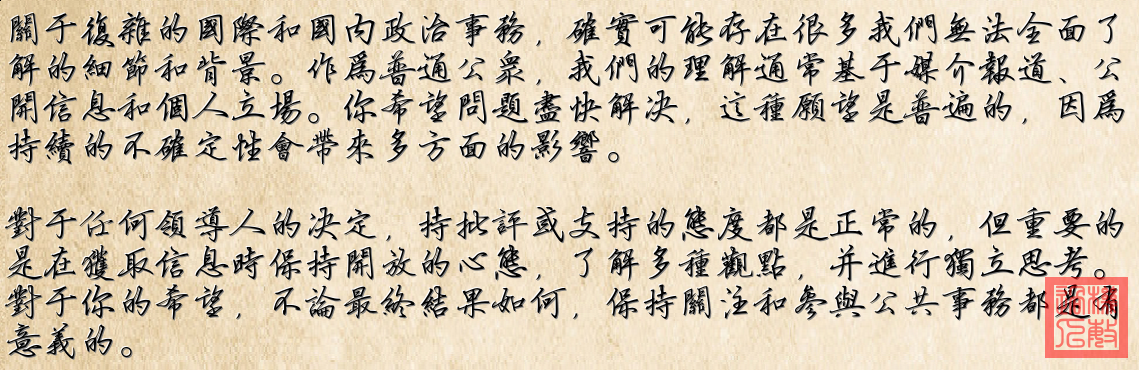 關于復雜的國際和國内政治事務，確實可能存在很多我們無法全面了
解的細節和背景。作爲普通公衆，我們的理解通常基于媒介報道、公
開信息和個人立場。你希望問題盡快解决，這種願望是普遍的，因爲
持續的不確定性會帶來多方面的影響。
對于任何領導人的决定，持批評或支持的態度都是正常的，但重要的
是在獲取信息時保持開放的心態，了解多種觀點，并進行獨立思考。
對于你的希望，不論最終結果如何，保持關注和參與公共事務都是有
意義的。